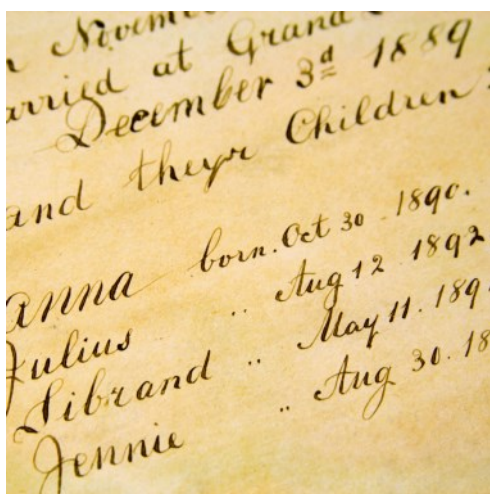 Novem
arried at Grand
December 3d 1889
and theyr Children
anna born. Oct 30 - 1890.
Julius " Aug 12 1892
Sibrand " May 11. 189
Jennie " Aug 30. 18